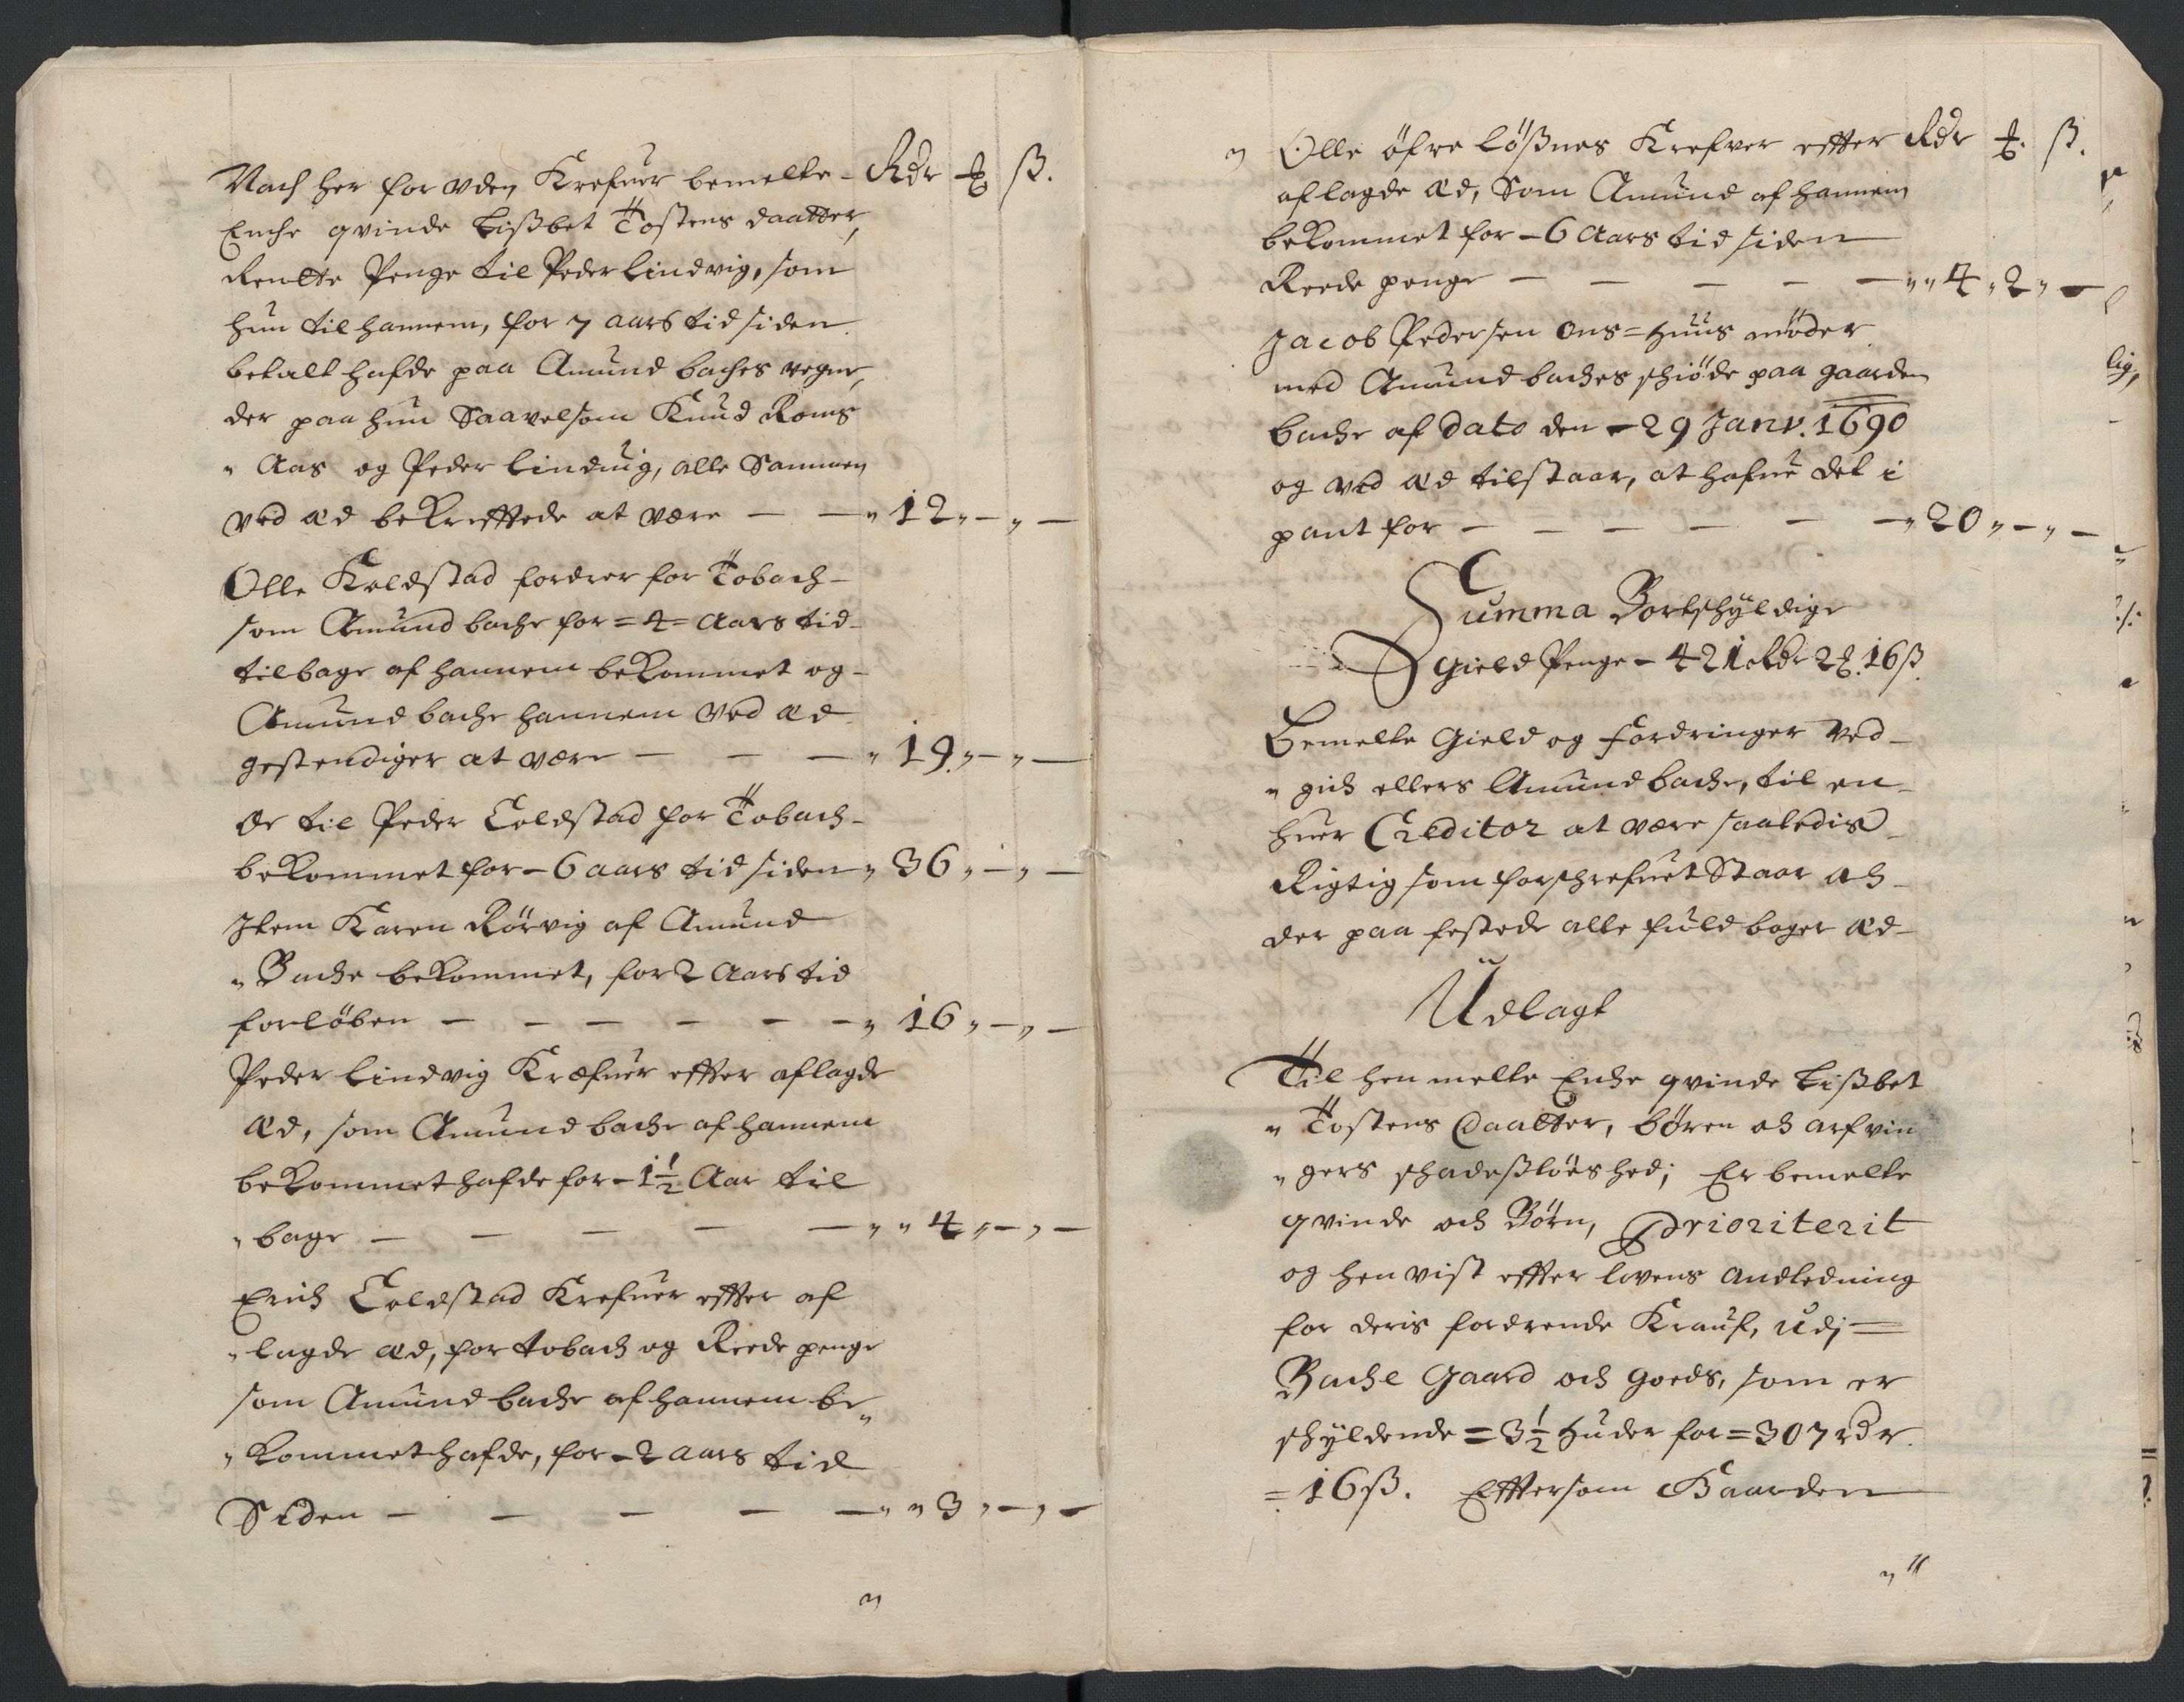 Noch her for vden Krefuer bemelte – Rdr ₻ ß.
Enche qvinde Lißbet Tostens daatter,
Rentte Penge til Peder Lindvig, som
hun til hannem, for 7 aars tid siden
betalt hafde paa Amund baches vegne,
der paa hun Saavelsom Knud Roms
„ Aas og Peder Lindvig, alle Sammen
ved æd bekrefftede at være — — „ 12 „ – „ –
Olle Koldstad fordrer for Tobach –
som Amund bache for = 4 = aars tid –
tilbage af hannem bekommet og –
Amund bache hannem ved æd
gestendiger at være — — — „ 19 „ – „ –
Er til Peder Coldstad for Tobach –
bekommet for – 6 aars tid siden „ 36 „ – „ –
Item Karen Rörvig af Amund
„ Bache bekommet, for 2 aars tid
forlöben — — — — — — „ 16 „ – „ –
Peder Lindvig Kræfuer effter aflagde
æd, som Amund bache af hannem
bekommet hafde for – 1½ Aar til
„ bage — — — — — „ „ 4 „ – „ –
Erich Coldstad Krefuer effter af
„ lagde æd, for tobach og Reede penge
som Amund bache af hannem be „
„ kommet hafde, for – 2 aars tid
Siden — — — — — „ „ 3 „ – „ –
„ Olle öfre Lößnes Krefver effter Rdr ₻. ß.
aflagde æd, Som Amund af hannem
bekommet for – 6 aars tid siden
Reede penge — — — — — „ „ 4 „ 2 „ –
Jacob Pedersen Ons = Huus möder
med Amund baches schiöde paa gaarden
bache af dato den – 29 Janv. 1690
og ved æd tilstaar, at hafue det i
pant for — — — — — „ 20 „ – „ –
Summa Bortschyldige
Gield Penge – 421 Rdr 2 ₻. 16 ß.
Bemelte Gield og fordringer Ved –
„ gich ellers Amund bache, til en –
huer Creditor at være saaledis –
Rigtig som forschrefuet Staar och –
der paa festede alle fuld boger æd –
Udlagt
Til hen melte Enche qvinde Lißbet
„ Tostens Daatter, bören och arfvin
„ gers schadeßlöeshed; Er bemelte
qvinde och Börn, Prioriterit
og hen vist effter lovens andledning
for deris fordrende Krauf, udj =
Bache Gaard och goeds, som er
schyldende = 3½ Huder for = 307 rdr.
= 16 ß. Effersom Gaarden
„ "